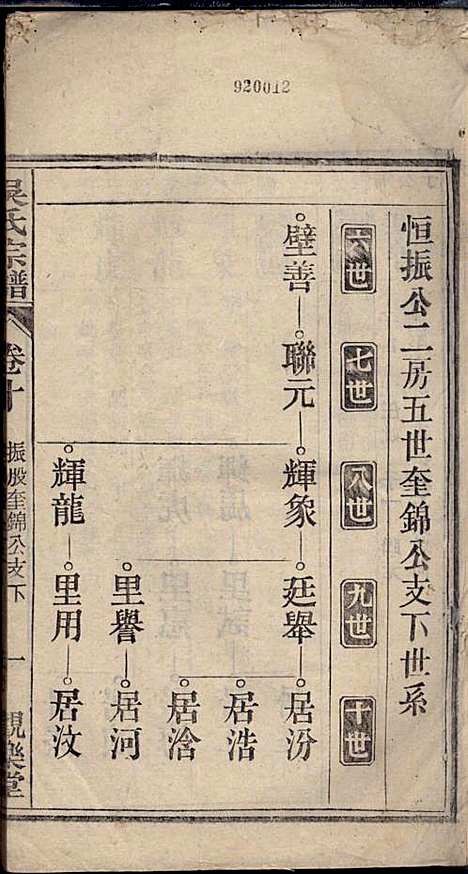 920012
恒振公二房五世奎錦公支下世系
六世 七世 八世 九世 十世
壁善 聯元 輝象 廷舉 居汾
居浩
居浛
里譽 居河
輝龍 里用 居汶
吳氏宗譜 卷十 振股奎錦公支下 一 觀樂堂